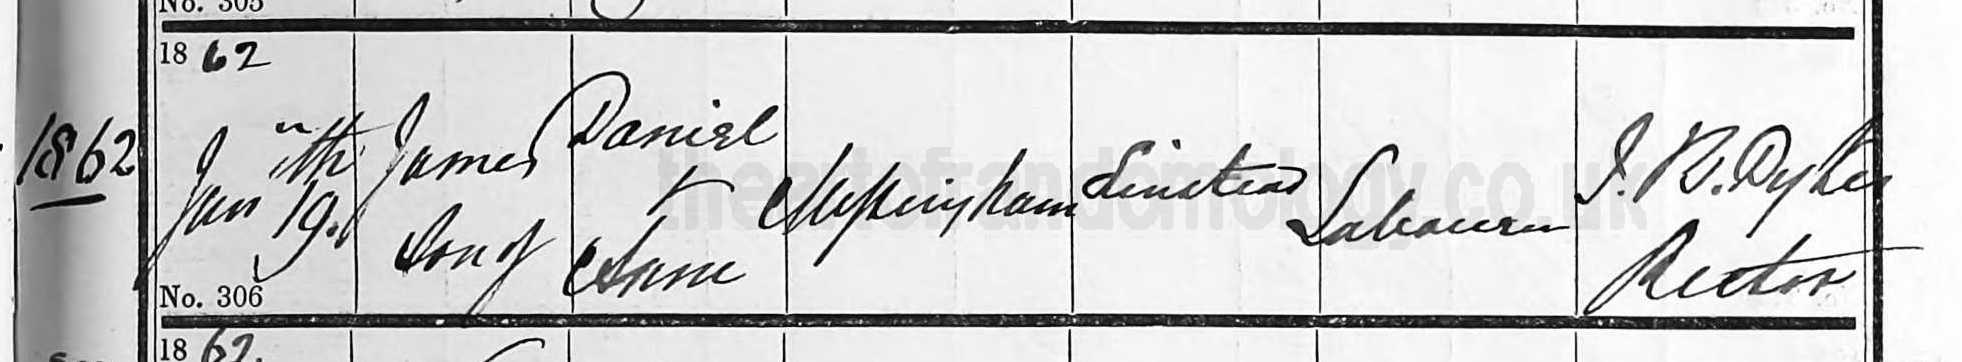 No. 305
1862
1862
Jan 19.th
James
Son of
Daniel
+
Anne
Linstead
Labourer
J. B. Dykes
Rector
No. 306
1862.
theartofrandomology.co.uk